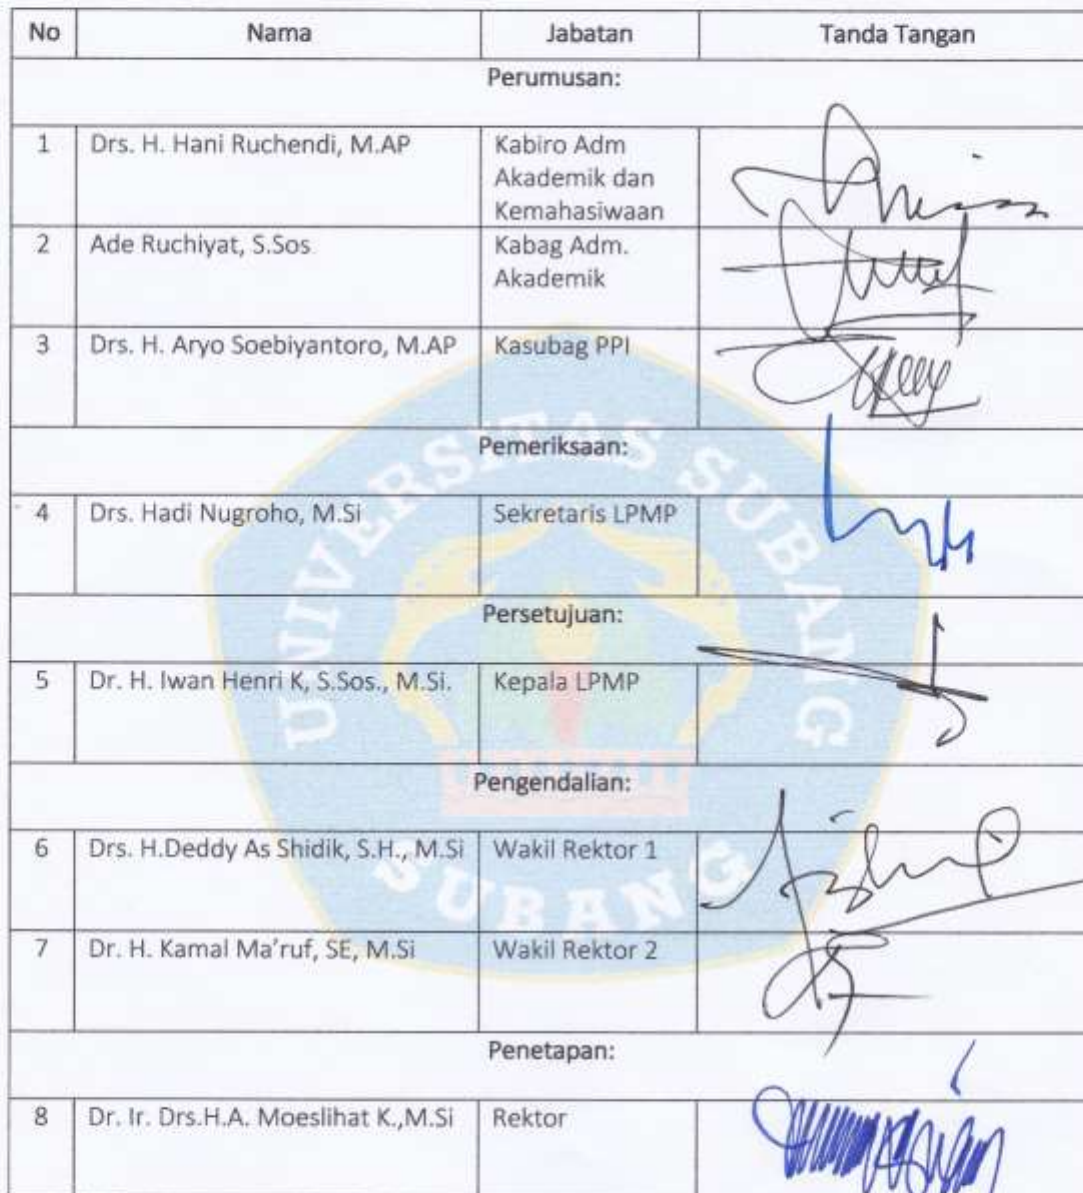 No Nama Jabatan Tanda Tangan
Perumusan:
1 Drs. H. Hani Ruchendi, M.AP Kabiro Adm
Akademik dan
Kemahasiwaan
2 Ade Ruchiyat, S.Sos Kabag Adm.
Akademik
3 Drs. H. Aryo Soebiyantoro, M.AP Kasubag PPI
Pemeriksaan:
4 Drs. Hadi Nugroho, M.Si Sekretaris LPMP
Persetujuan:
5 Dr. H. Iwan Henri K, S.Sos., M.Si. Kepala LPMP
Pengendalian:
6 Drs. H.Deddy As Shidik, S.H., M.Si Wakil Rektor 1
7 Dr. H. Kamal Ma'ruf, SE, M.Si Wakil Rektor 2
Penetapan:
8 Dr. Ir. Drs.H.A. Moeslihat K.,M.Si Rektor
UNIVERSITAS SUBANG
SUBANG